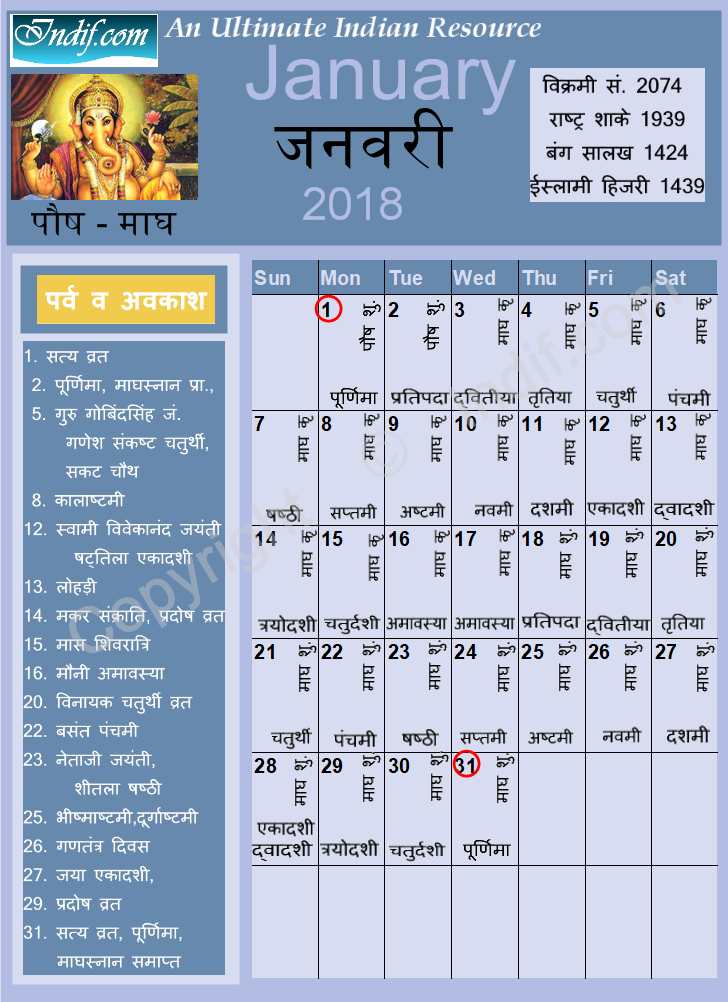 Indif.com An Ultimate Indian Resource
January
जनवरी
2018
विक्रमी सं. 2074
राष्ट्र शाके 1939
बंग सालख 1424
ईस्लामी हिजरी 1439
पौष - माघ
पर्व व अवकाश
1. सत्य व्रत
2. पूर्णिमा, माघस्नान प्रा.,
5. गुरु गोबिंदसिंह जं.
गणेश संकष्ट चतुर्थी,
सकट चौथ
8. कालाष्टमी
12. स्वामी विवेकानंद जयंती
षट्तिला एकादशी
13. लोहड़ी
14. मकर संक्राति, प्रदोष व्रत
15. मास शिवरात्रि
16. मौनी अमावस्या
20. विनायक चतुर्थी व्रत
22. बसंत पंचमी
23. नेताजी जयंती,
शीतला षष्ठी
25. भीष्माष्टमी,दूर्गाष्टमी
26. गणतंत्र दिवस
27. जया एकादशी,
29. प्रदोष व्रत
31. सत्य व्रत, पूर्णिमा,
माघस्नान समाप्त
Sun Mon Tue Wed Thu Fri Sat
1 पौष शुं 2 पौष शुं 3 माघ कृ 4 माघ कृ 5 माघ कृ 6 माघ कृ
पूर्णिमा प्रतिपदा द्वितीया तृतिया चतुर्थी पंचमी
7 माघ कृ 8 माघ कृ 9 माघ कृ 10 माघ कृ 11 माघ कृ 12 माघ कृ 13 माघ कृ
षष्ठी सप्तमी अष्टमी नवमी दशमी एकादशी द्वादशी
14 माघ कृ 15 माघ कृ 16 माघ कृ 17 माघ कृ 18 माघ शुं 19 माघ शुं 20 माघ शुं
त्रयोदशी चतुर्दशी अमावस्या अमावस्या प्रतिपदा द्वितीया तृतिया
21 माघ शुं 22 माघ शुं 23 माघ शुं 24 माघ शुं 25 माघ शुं 26 माघ शुं 27 माघ शुं
चतुर्थी पंचमी षष्ठी सप्तमी अष्टमी नवमी दशमी
28 माघ शुं 29 माघ शुं 30 माघ शुं 31 माघ शुं
एकादशी
द्वादशी त्रयोदशी चतुर्दशी पूर्णिमा
Copyright © Indif.com